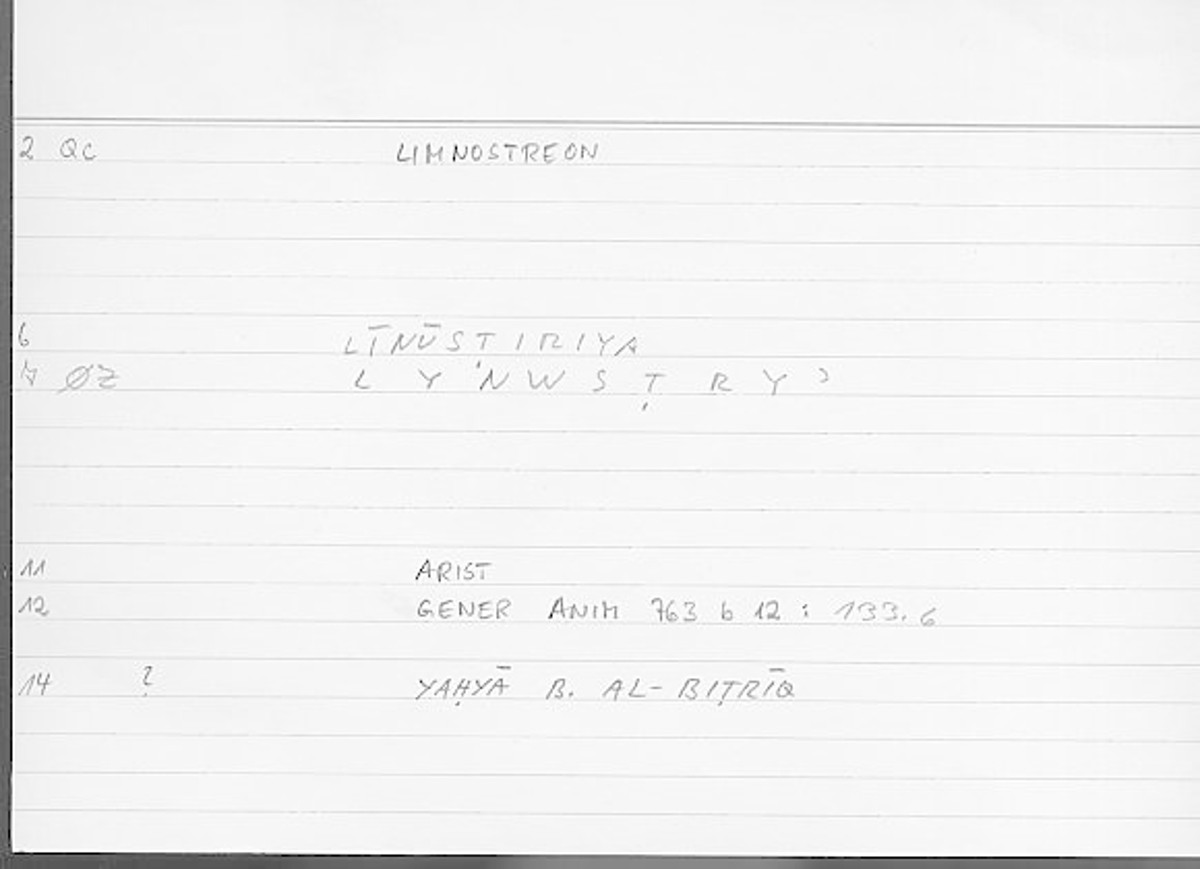 2 QC LIMNOSTREON
6 LĪNŪSTIRIYA
ØZ L Y N W S Ṭ R Y ʾ
11 ARIST
12 GENER ANIM 763 b 12 : 133.6
14 ? YAḤYĀ B. AL-BIṬRĪQ